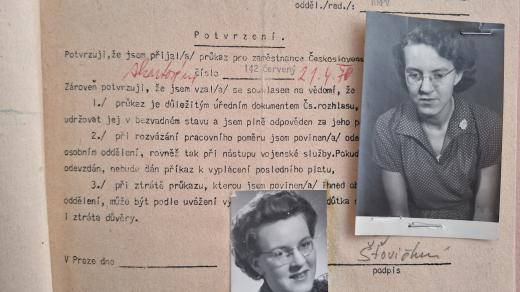 odděl./red./:
Potvrzení.
Potvrzuji,že jsem přijal/a/ průkaz pro zaměstnance Českosloven
skartován číslo 142 červený 21.4.70
Zároveň potvrzuji, že jsem vzal/a/ se souhlasem na vědomí, že
1./ průkaz je důležitým úředním dokumentem Čs.rozhlasu,
udržovat jej v bezvadném stavu a jsem plně odpověden za jeho
2./ při rozvázání pracovního poměru jsem povinen/a/ ode
osobním oddělení, rovněž tak při nástupu vojenské služby.Pokud
odevzdán, nebude dán příkaz k vyplácení posledního platu,
3./ při ztrátě průkazu, kterou jsem povinen/a/ ihned ob
oddělení, může být podle uvážení vý důtka s
i ztráta důvěry.
V Praze dno
Šťovíčková
podpis